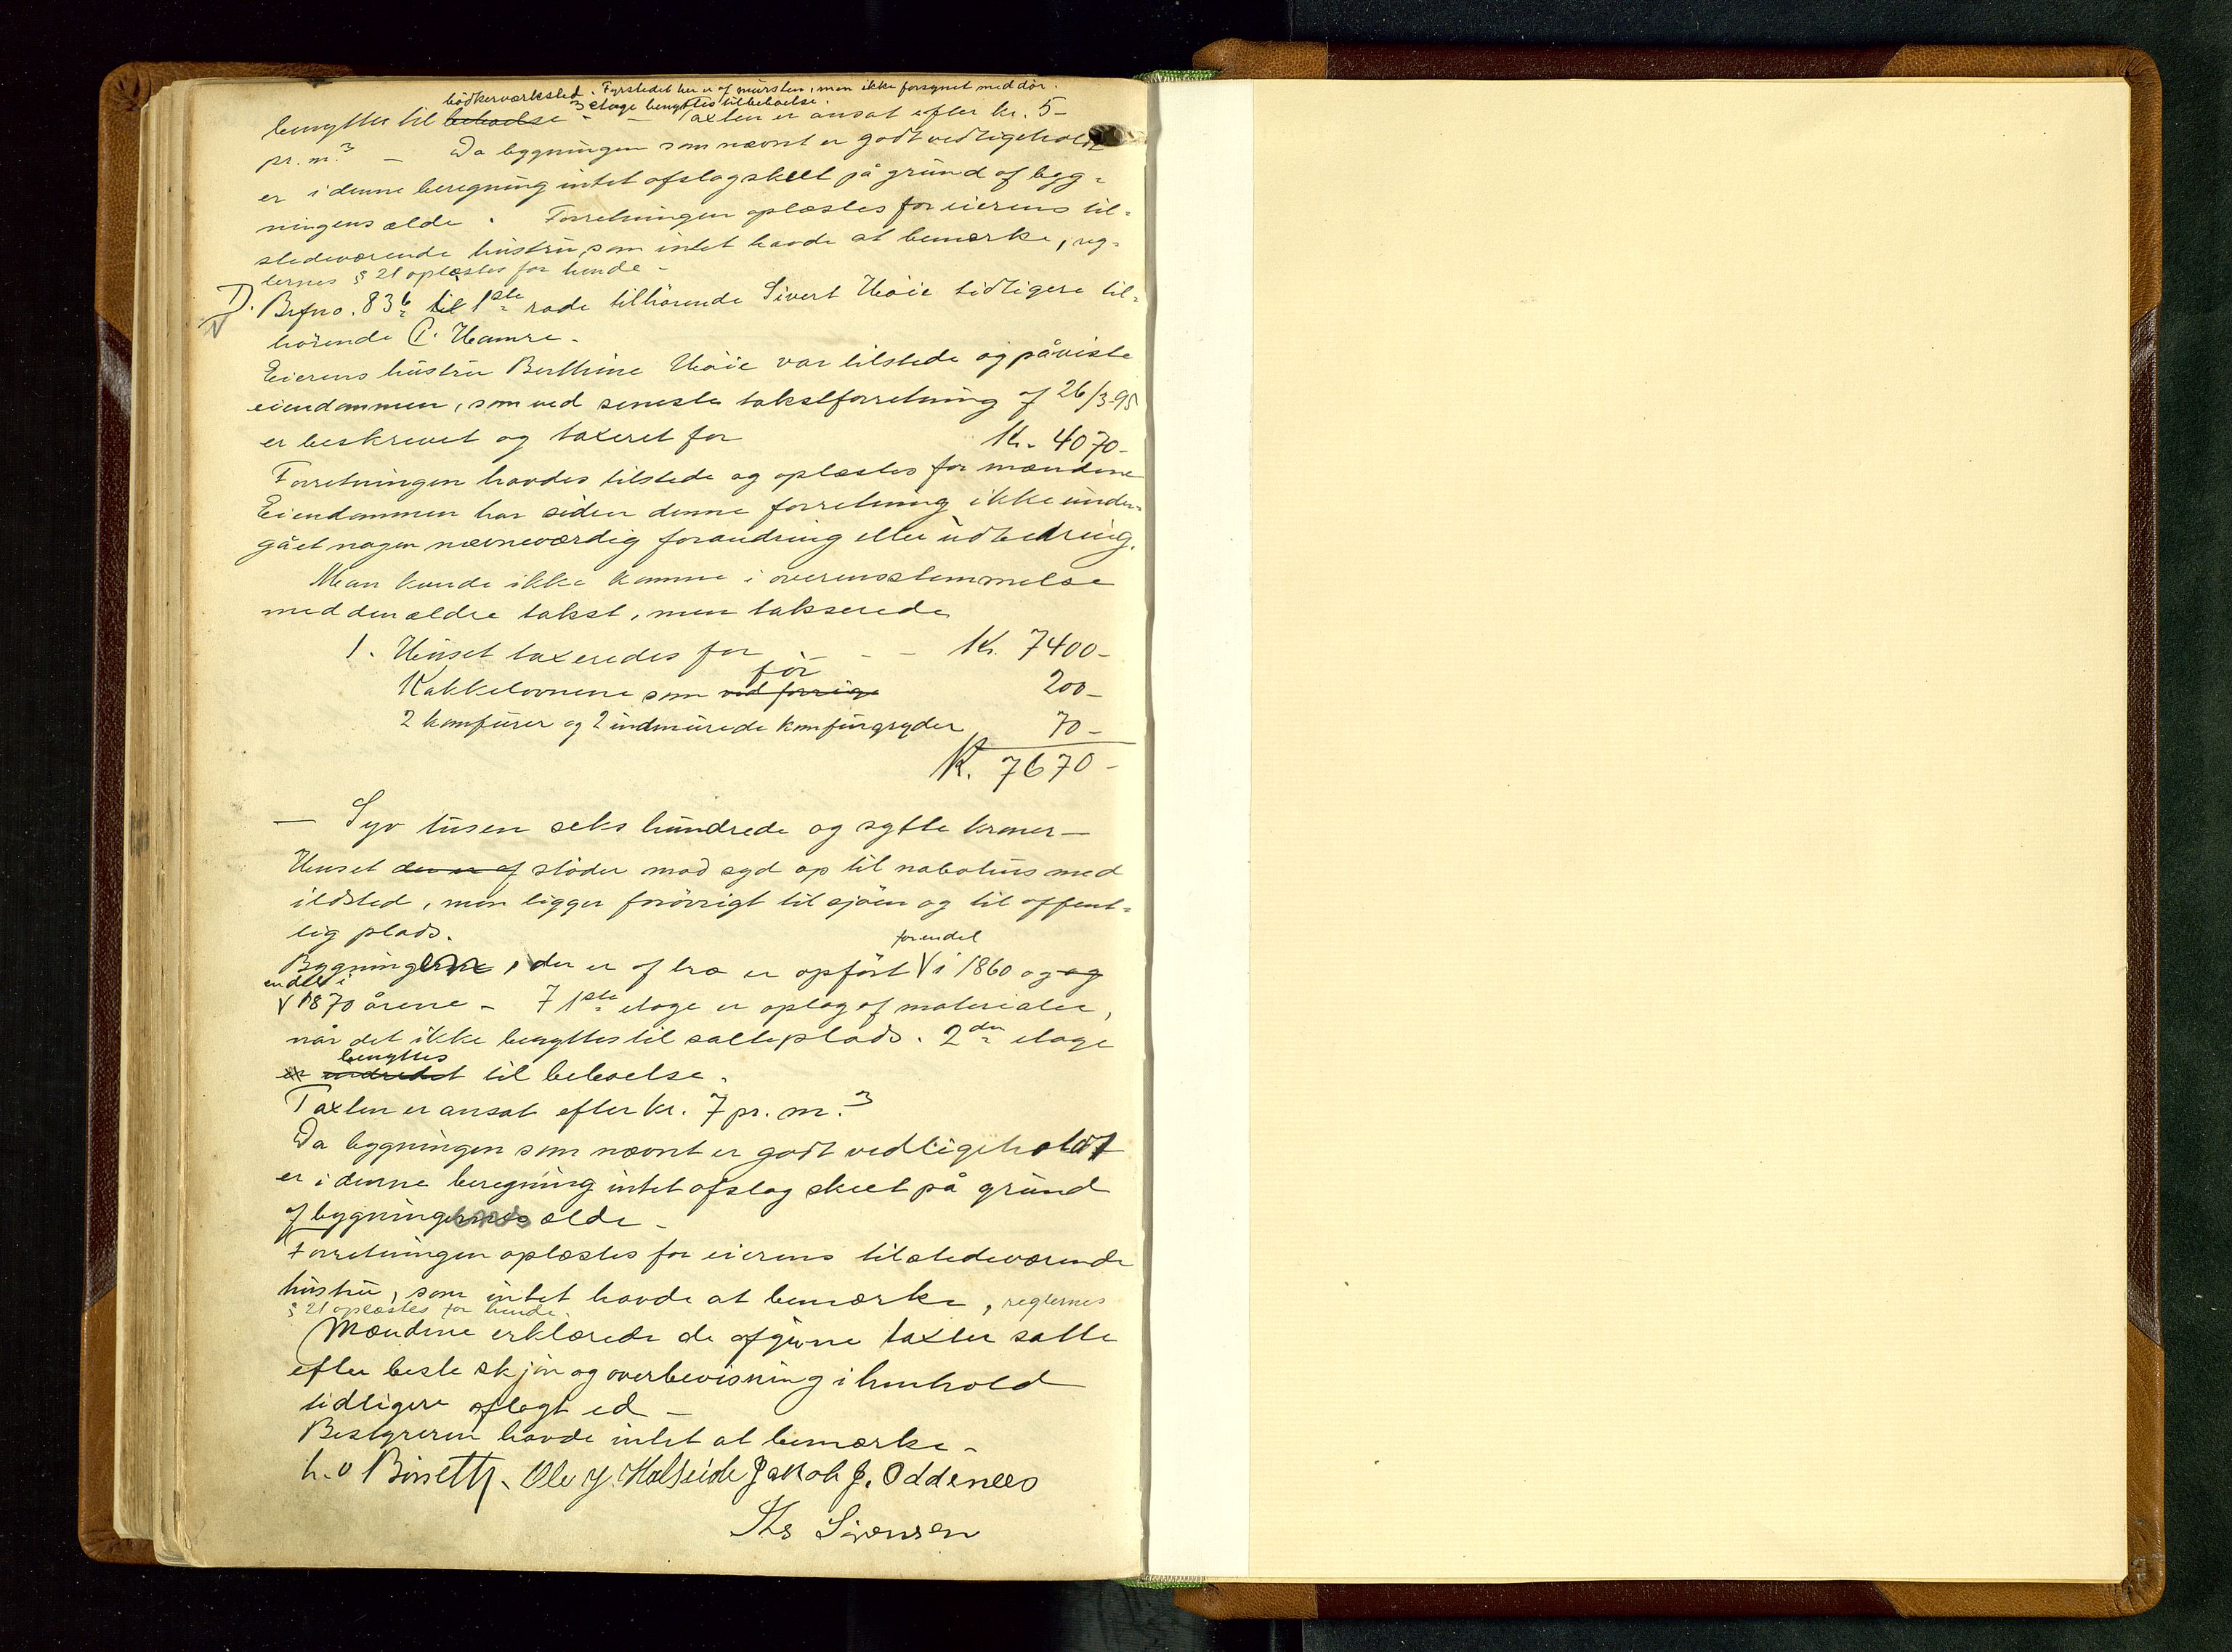 bödkerværksted. Fyrstedet her er af mursten, men ikke forsynet med dör.
3 etage benyttes til beboelse.
benyttes til beboelse - — Taxten er ansat efter kr. 5-
pr. m.³ — Da bygningen som nævnt er godt vedligeholdt
er i denne beregning intet afslag skeet på grund af byg-
ningens ælde. Forretningen oplæstes for eierens til-
stedeværende hustru, som intet havde at bemærke, reg-
lernes § 21 oplæstes for hende -
D. Brfno. 83b til 1ste rode tilhörende Sivert Höie tidligere til-
hörende P. Hamre.
Eierens hustru Berthine Höie var tilstede og påviste
eiendommen, som ved seneste takstforretning af 26/3-95
er beskrevet og taxeret for Kr. 4070-
Forretningen havdes tilstede og oplæstes for mændene
Eiendommen har siden denne forretning ikke under-
gået nogen nævneværdig forandring eller udbedring.
Man kunde ikke komme i overensstemmelse
med den ældre takst, men takserede
1. Huset taxeredes for - - - Kr. 7400-
för
Kakkelovnene som ved forrige 200-
2 komfurer og 2 indmurede komfurgryder 70-
Kr. 7670-
— Syv tusen seks hundrede og sytti kroner —
Huset der er af stöder mod syd op til nabohus med
ildsted, men ligger forövrigt til sjöen og til offent-
lig plads.
for en del
Bygningen, der er af træ er opfört V i 1860 og og
endel i
V 1870 årene - I 1ste etage er oplag af materialer,
når det ikke benyttes til salteplads. 2den etage
benyttes
er indredet til beboelse.
Taxten er ansat efter kr. 7 pr. m.³
Da bygningen som nævnt er godt vedligeholdt
er i denne beregning intet afslag skeet på grund
af bygningens ælde -
Forretningen oplæstes for eierens tilstedeværende
hustru, som intet havde at bemærke, reglernes
§ 21 oplæstes for hende.
Mændene erklærede de afgivne taxter satte
efter beste skjön og overbevisning i henhold
tidligere aflagt ed -
Bestyreren havde intet at bemærke -
Ole J. Halseide Jakob J. Oddenees
Sörensen